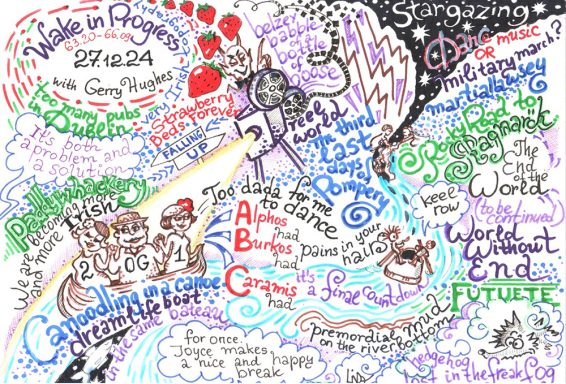 Wake in Progress
63.20 - 66.09
27.12.24
with Gerry Hughes
too many pubs
in Dublin
It's both
a problem and
a solution
Paddywhackery
We are becoming more
and more Irish
very Irish
Strawberry
Beds forever
FALLING
UP
belzey
babble
of a
bottle
of
boose
reel
world
Stargazing
Mars music
OR
military march?
martiallawsey
The third
last
days of
Pompery
Rocky Road to
Ragnarok
The
End of
the
World
(to be
continued)
World
Without
End
FUTUETE
keep
row
Too dada for me
to dance
Alphos
had
Burkos
had
Caramis had
pains in your
hairs
it's a final countdown
2 OG 1
Canoodling in a canoe
dream life boat
in the same bateau
primordial mud
on the river bottom
for once,
Joyce makes
a nice and happy
break
LNDA
hedgehog
in the freak fog